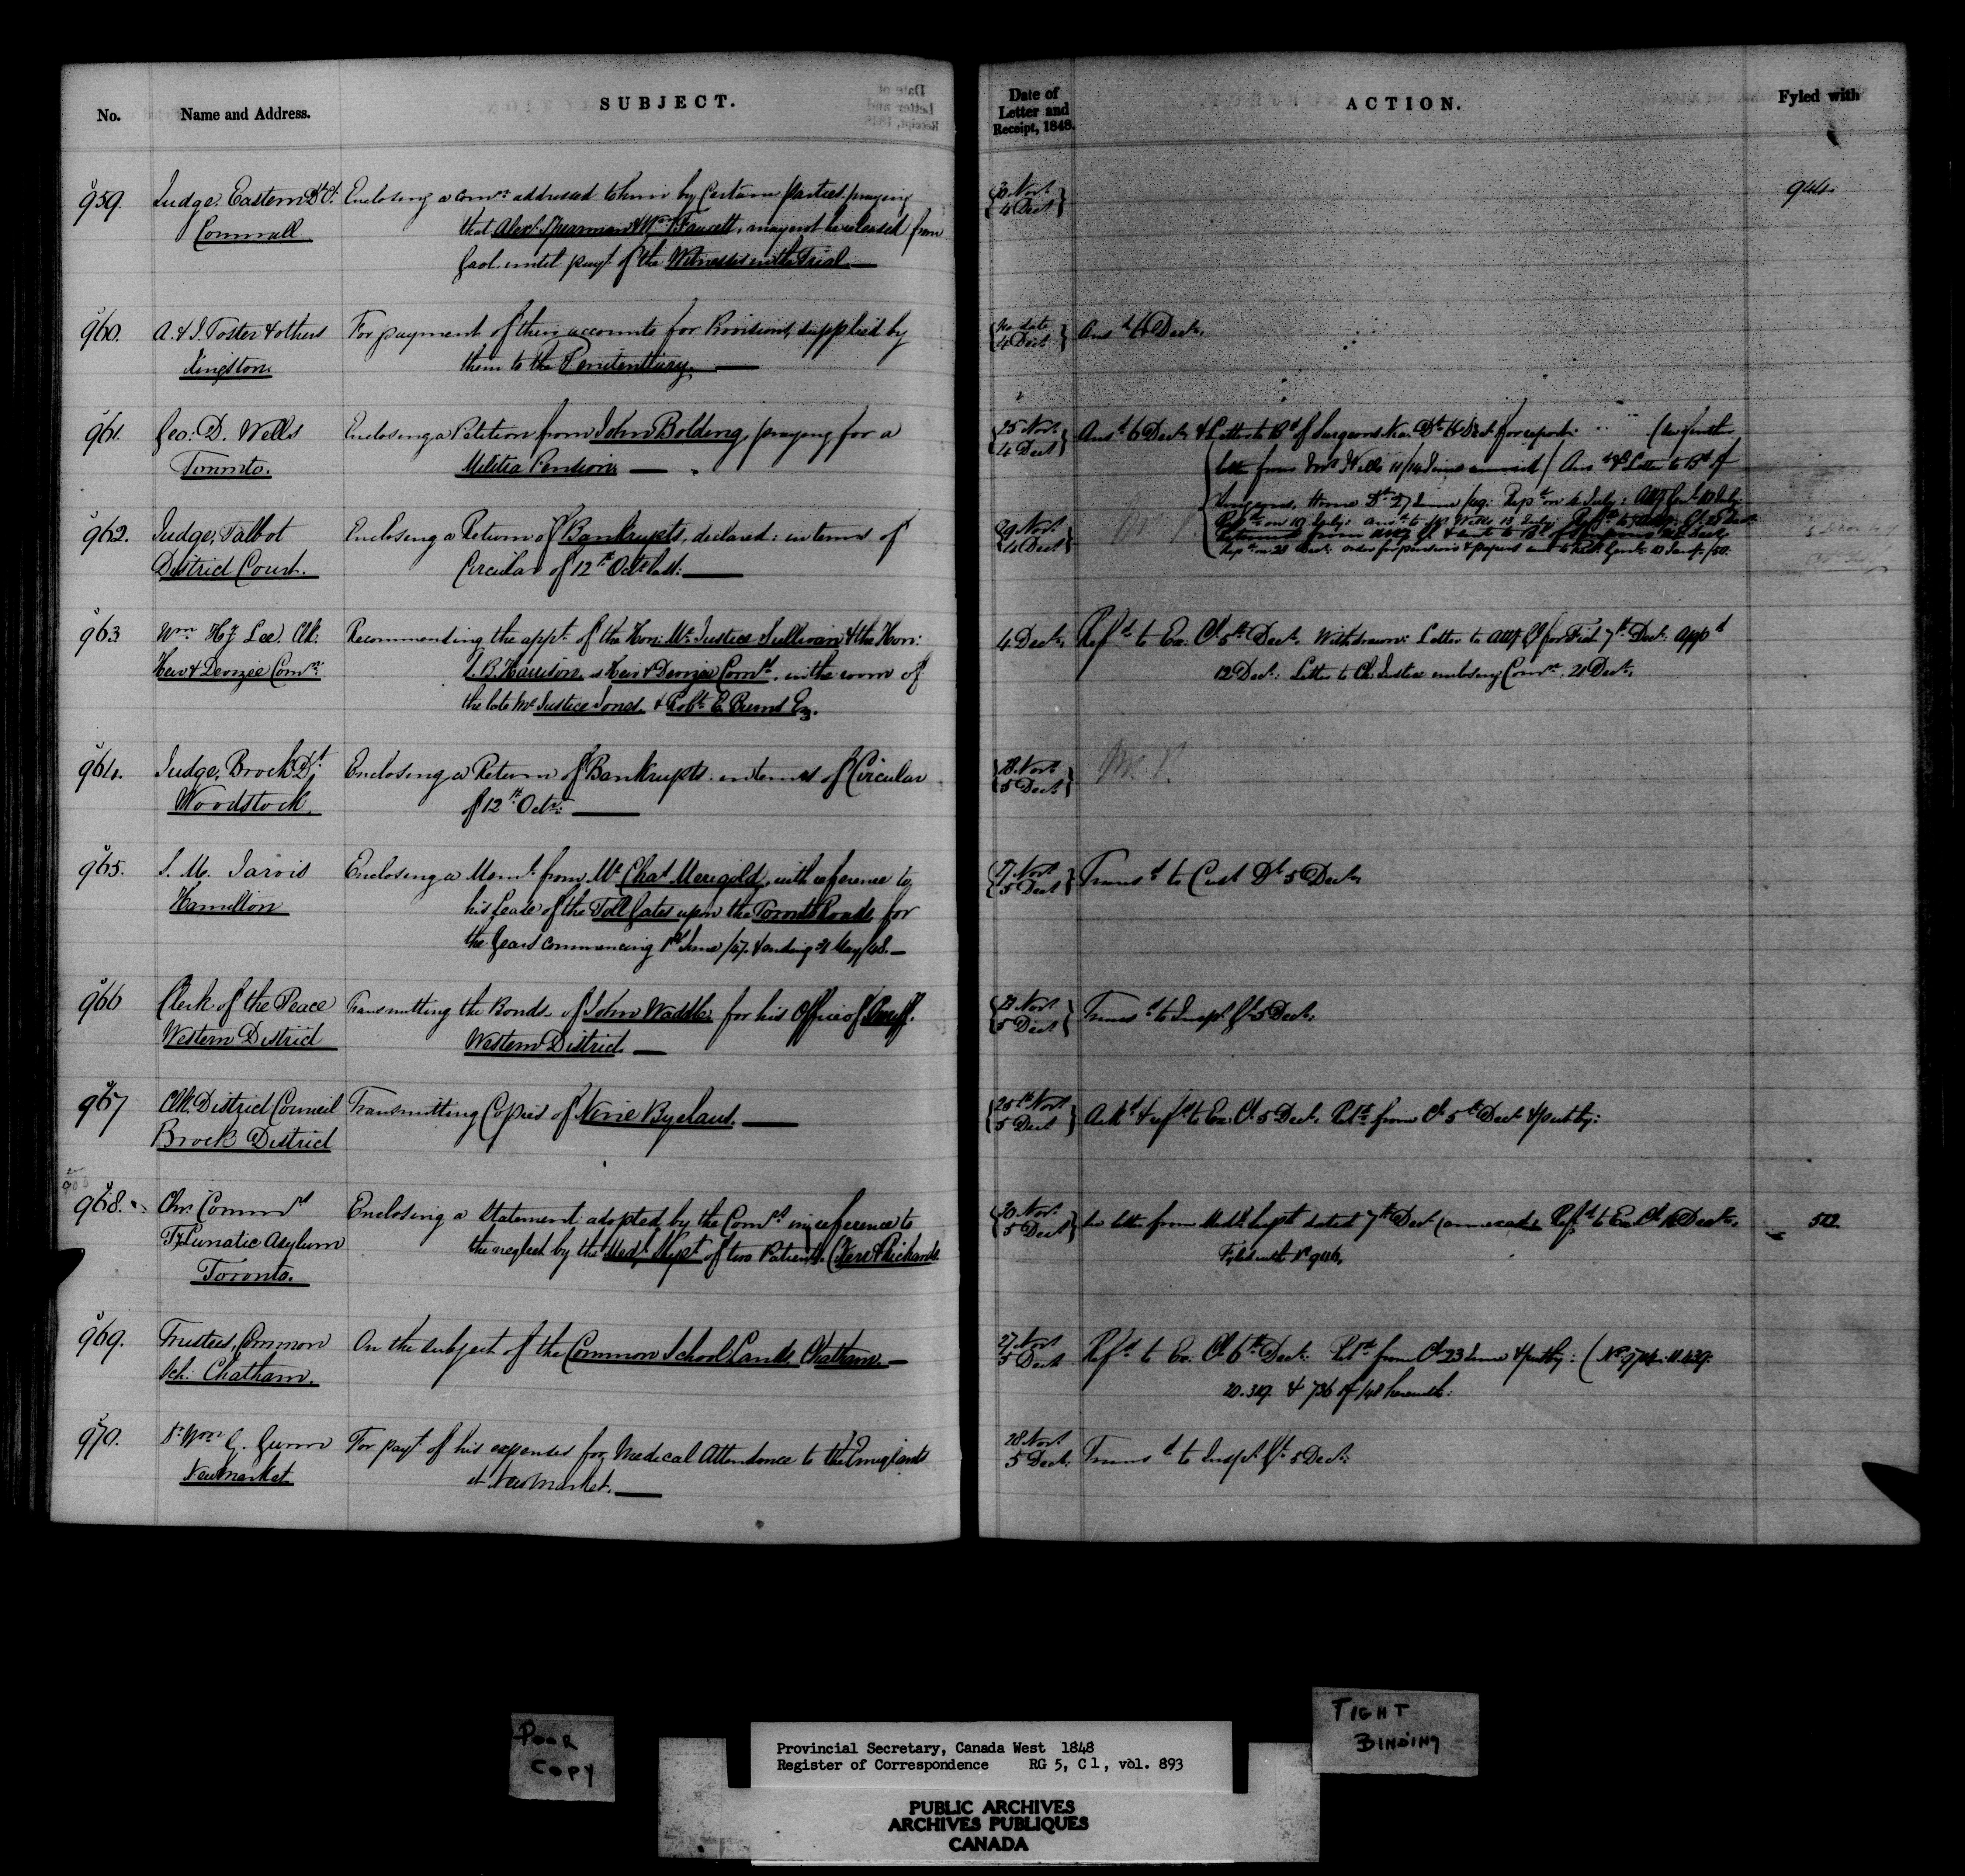 No.
Name and Address.
SUBJECT.
959.
Judge, Eastern Dt. Ct.
Cornwall
Enclosing a comn. addressed to him by Certain parties praying
that Alexr. Spearman & Wm. Faucett, may not be released from
Gaol until payt. of the Witnesses in the Trial
960.
A. & J. Foster & others
Kingston
For payment of their accounts for Provisions supplied by
them to the Penitentiary.
961.
Geo: D. Wells
Toronto.
Enclosing a Petition from John Bolding, praying for a
Militia Pension
962.
Judge, Talbot
District Court.
Enclosing a Return of Bankrupts, declared: in terms of
Circular of 12th Octr. last:
963
Wm. Hy. Lee, Clk.
Heir & Devizee Comn.
Recommending the appt. of the Hon: Mr. Justice Sullivan & the Hon:
S. B. Harrison, as Heir & Devizee Comrs. in the room of
the late Mr. Justice Jones & Robt. E. Burns Esq.
964.
Judge, Brock Dt.
Woodstock.
Enclosing a Return of Bankrupts in terms of Circular
of 12th Octr:
965.
S. M. Jarvis
Hamilton
Enclosing a Meml. from Mr. Chas. Merigold, with reference to
his Lease of the Toll Gates upon the Toronto Roads for
the years commencing 1st June /47. & ending 31 May /48.
966
Clerk of the Peace
Western District
Transmitting the Bonds of John Waddle for his Office of
Western District.
967
Clk. District Council
Brock District
Transmitting Copies of Nine Byelaws.
968.
Chn. Commrs.
Ty. Lunatic Asylum
Toronto.
Enclosing a Statement adopted by the Comrs. in reference to
the neglect by the Medl. Supt. of two Patients (Kerr & Richards
969.
Trustees, Common
Sch: Chatham.
On the subject of the Common School Lands Chatham
970.
Dr. Wm. G. Gunn
Newmarket
For payt. of his expenses for Medical Attendance to the Emigrants
at Newmarket.
Date of
Letter and
Receipt, 1848.
ACTION.
Fyled with
30 Novr.
4 Decr.
944.
No date
4 Decr.
Ansd. 6 Decr.
25 Novr.
4 Decr.
Ansd. 6 Decr. & Letter to Bd. of Surgeons Nia. Dt. 6 Decr. for report:
letter from Mr. Wells
29 Novr.
4 Decr.
4 Decr.
Refd. to Ex. Cl. 5th Decr. Withdrawn: Letter to Atty. Gl. for Fiat 7th Decr. Appd.
12 Decr: Letter to Ch. Justice enclosing Comn. 21 Decr.
28 Novr.
5 Decr.
27 Novr.
5 Decr.
Transd. to Cust. Dt. 5 Decr.
5 Decr.
Transd. to Inspr. Gl. 5 Decr.
25th Novr.
5 Decr.
Ackd. & refd. to Ex. Cl. 5 Decr. Retd. from Cl. 5th Decr. & put by:
30 Novr.
5 Decr.
See letter from Medl. Supt. dated 7th Decr. (annexed: Refd. to Ex. Cl. Decr.
Fyled with
512
27 Novr.
5 Decr.
Refd. to Ex. Cl. 6th Decr: Retd. from Cl. 23 June & put by:
& 736 of /48 herewith:
28 Novr.
5 Decr.
Transd. to Inspr. Gl. 5 Decr:
POOR
COPY
TIGHT
BINDING
Provincial Secretary, Canada West 1848
Register of Correspondence RG 5, C1, vol. 893
PUBLIC ARCHIVES
ARCHIVES PUBLIQUES
CANADA